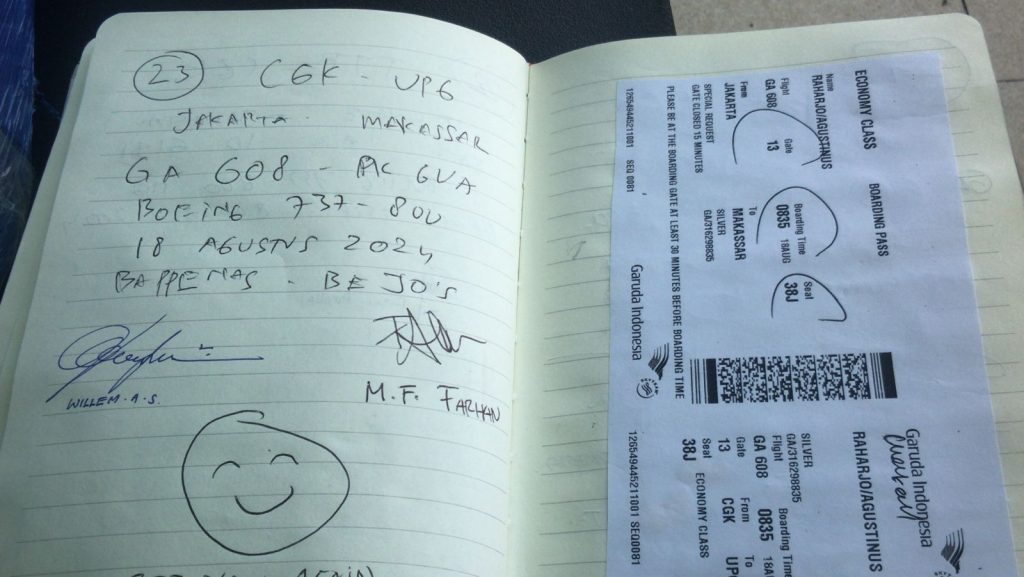 23 CGK - UPG
JAKARTA MAKASSAR
GA 608 - GUA
BOEING 737-800
18 AGUSTUS 2024
BAPPENAS - BEJO'S
WILLEM.A.S.
M.F. FARHAN
AGAIN
ECONOMY CLASS BOARDING PASS
Name
RAHARJO/AGUSTINUS
Flight Gate Boarding Time Seat
GA 608 13 0835 18AUG 38J
From To
JAKARTA MAKASSAR
SPECIAL REQUEST SILVER
GATE CLOSED 15 MINUTES GA/316298835
PLEASE BE AT THE BOARDING GATE AT LEAST 30 MINUTES BEFORE BOARDING TIME
Garuda Indonesia
126549445211001 SEQ 0081
Garuda Indonesia
RAHARJO/AGUSTINUS
SILVER
GA/316298835
Flight Boarding Time
GA 608 0835 18A
Gate From To
13 CGK UP
Seat
38J ECONOMY CLASS
126549445211001 SEQ0081